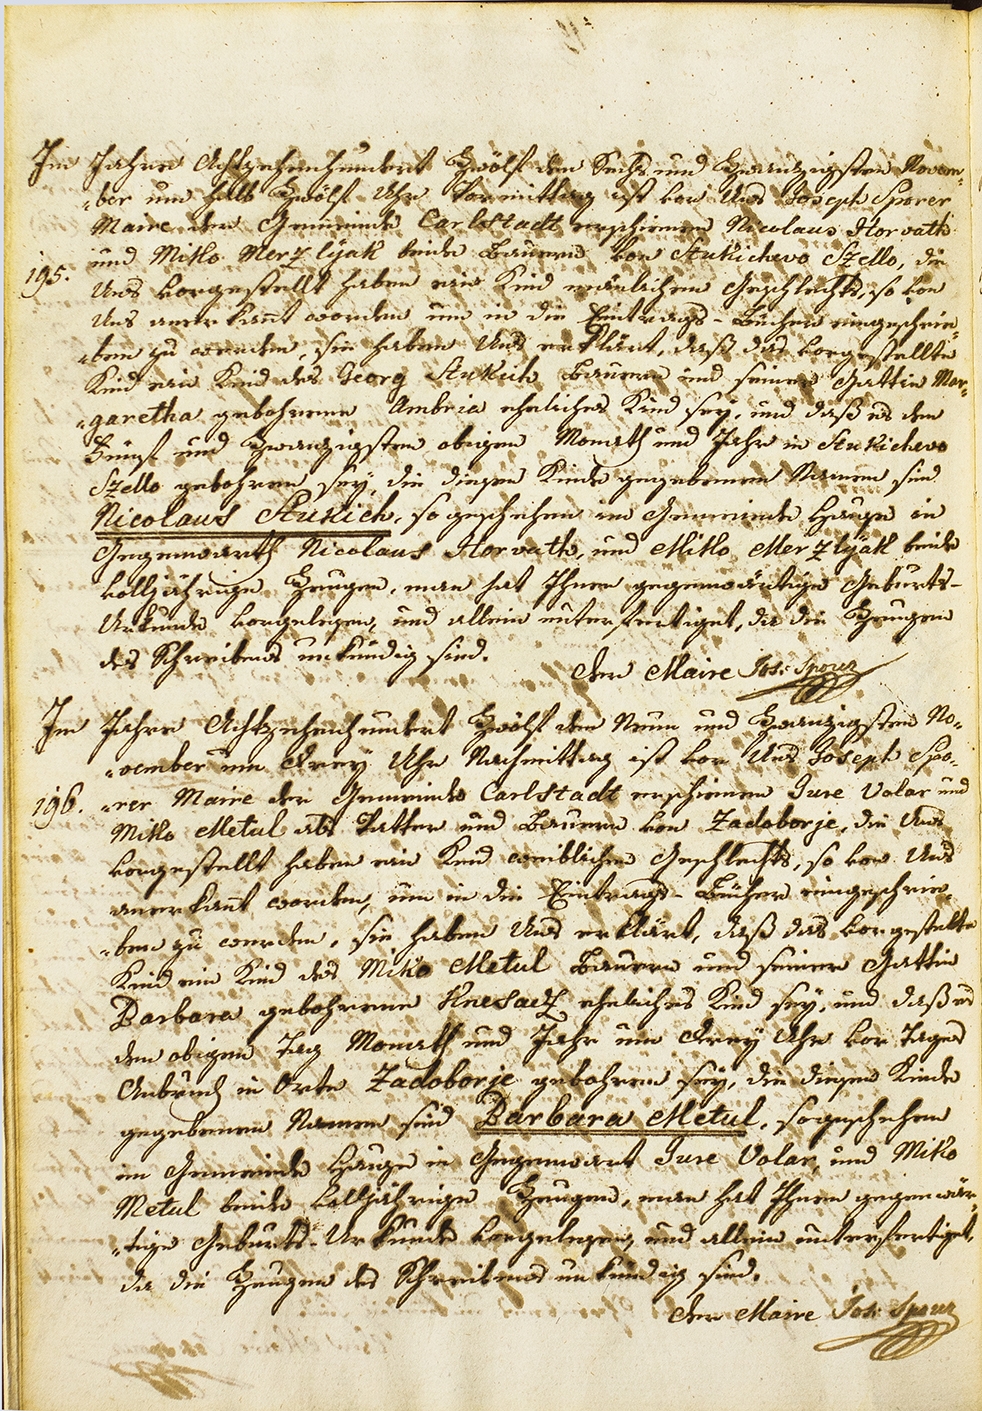 Im Jahre Achtzehenhundert Zwölf den Sechs und Zwanzigsten Novem-
-ber um halb Zwölf Uhr Vormittag ist vor Uns Joseph Sporer
Maire der Gemeinde Carlstadt erschienen Nicolaus Horvath
195. und Mitko Merzlyak beide Bauern von Stukichevo Szello, die
Uns vorgestellt haben ein Kind mänlichen Geschlechts, so von
Uns anerkant worden um in die Eintrags-Bücher eingeschrie-
-ben zu werden, sie haben Uns erklärt, daß das vorgestellte
Kind ein Kind des Georg Stukich Bauern und seiner Gattin Mar-
-garetha gebohrene Ambria eheliches Kind sey, und daß es den
Fünf und Zwanzigsten obigen Monath und Jahr in Stukichevo
Szello gebohren sey, die diesen Kinde gegebenen Namen sind
Nicolaus Stukich, so geschehen im Gemeinde Hause in
Gegenwarth Nicolaus Horvath, und Mitko Merzlyak beide
volljährige Zeugen, man hat Ihnen gegenwärtige Geburts-
Urkunde vorgelegen, und allein unterfertiget, da die Zeugen
des Schreibens unkündig sind.
Der Maire Jos: Sporer
Im Jahre Achtzehenhundert Zwölf den Neun und Zwanzigsten No-
-vember um Drey Uhr Nachmittag ist vor Uns Joseph Spo-
196. -rer Maire der Gemeinde Carlstadt erschienen Jure Volar und
Miko Metul als Vatter und Bauern von Zadoborje, die Uns
vorgestellt haben ein Kind weiblichen Geschlechts, so von Uns
anerkant worden, um in die Eintrags-Bücher eingeschrie-
-ben zu werden, sie haben Uns erklärt, daß das vorgestelte
Kind ein Kind des Miko Metul Bauern und seiner Gattin
Barbara gebohrene Knesacz eheliches Kind sey, und daß es
den obigen Tag Monath und Jahr um Drey Uhr vor Tages
Anbruch in Orte Zadoborje gebohren sey, die diesen Kinde
gegebenen Namen sind Barbara Metul, so geschehen
im Gemeinde Hause in Gegenwart Jure Volar, und Miko
Metul beide volljährige Zeugen, man hat Ihnen gegenwär-
-tige Geburts-Urkunde vorgelegen, und allein unterfertiget,
da die Zeugen des Schreibens unkündig sind.
Der Maire Jos: Sporer